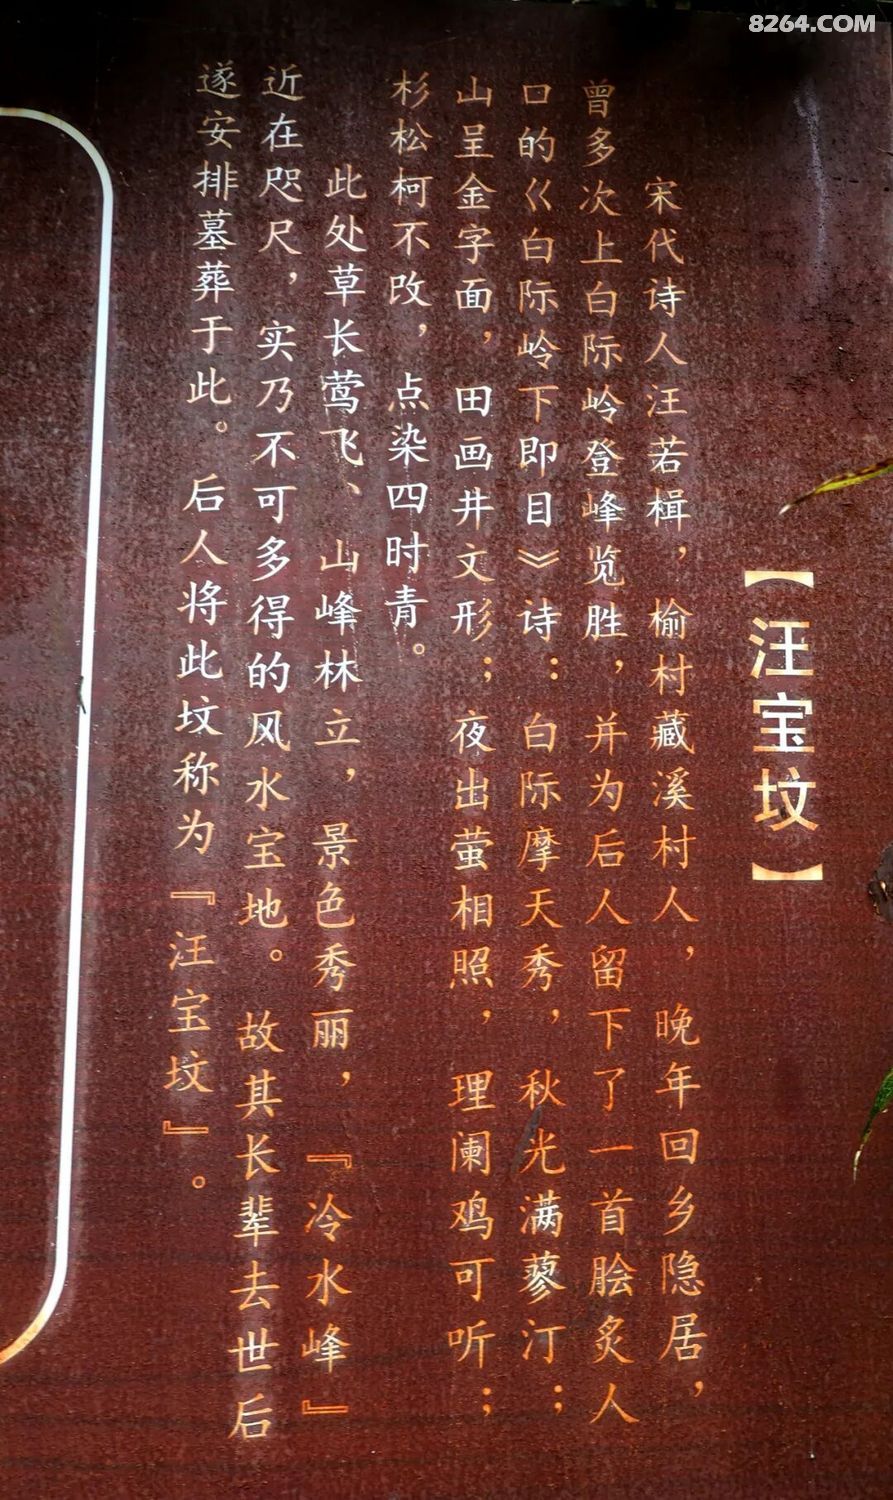 8264.COM
【汪宝坟】
宋代诗人汪若楫，榆村藏溪村人，晚年回乡隐居，
曾多次上白际岭登峰览胜，并为后人留下了一首脍炙人
口的《白际岭下即目》诗：白际摩天秀，秋光满蓼汀；
山呈金字面，田画井文形；夜出萤相照，理阑鸡可听；
杉松柯不改，点染四时青。
此处草长莺飞、山峰林立，景色秀丽，『冷水峰』
近在咫尺，实乃不可多得的风水宝地。故其长辈去世后
遂安排墓葬于此。后人将此坟称为『汪宝坟』。